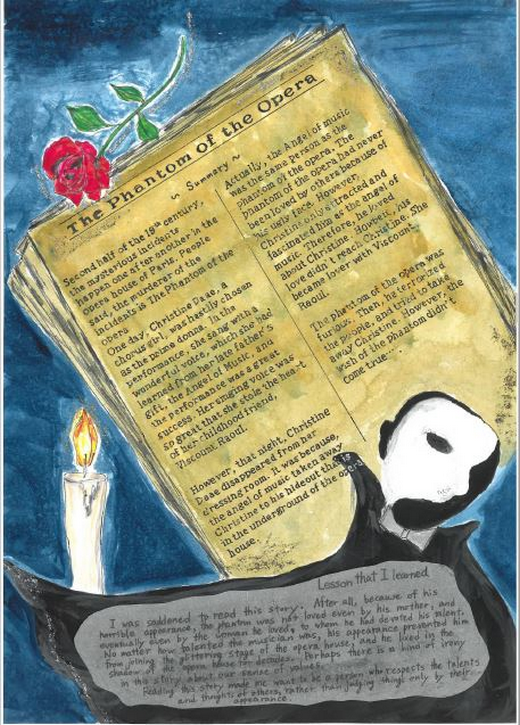 The Phantom of the Opera
~ Summary ~
Second half of the 19th century,
the mysterious incidents
happen one after another in the
opera house of Paris. People
said, the murderer of the
incidents is The Phantom of the
opera
One day, Christine Daae, a
chorus girl, was hastily chosen
as the prime donna. In the
performance, she sang with a
wonderful voice, which she had
learned from her late father's
gift, the Angel of Music, and
the performance was a great
success. Her singing voice was
so great that she stole the heart
of her childhood friend,
Viscount Raoul.
However, that night, Christine
Daae disappeared from her
dressing room. It was because,
the angel of music taken away
Christine to his hideout that is
in the underground of the opera
house.
Actually, the Angel of music
was the same person as the
phantom of the opera. The
phantom of the opera had never
been loved by others because of
his ugly face. However,
Christine only attracted and
fascinated him as the angel of
music. Therefore, he loved
about Christine. However, his
love didn't reach Christine. She
became lover with Viscount
Raoul.
The Phantom of the opera was
furious. Then, he terrorized
the people, and tried to take
away Christine. However, the
wish of the Phantom didn't
come true...
Lesson that I learned
I was saddened to read this story. After all, because of his
horrible appearance, the phantom was not loved even by his mother, and
eventually even by the woman he loved, to whom he had devoted his talent.
No matter how talented the musician was, his appearance prevented him
from joining the glittering stage of the opera house, and he lived in the
shadow of the opera house for decades. Perhaps there is a kind of irony
in this story about our sense of values.
Reading this story made me want to be a person who respects the talents
and thoughts of others, rather than judging things only by their
appearance.